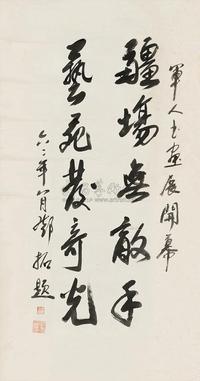 軍人書畫展開幕
疆場無敵手
藝苑發奇光
六二年八月鄧拓題